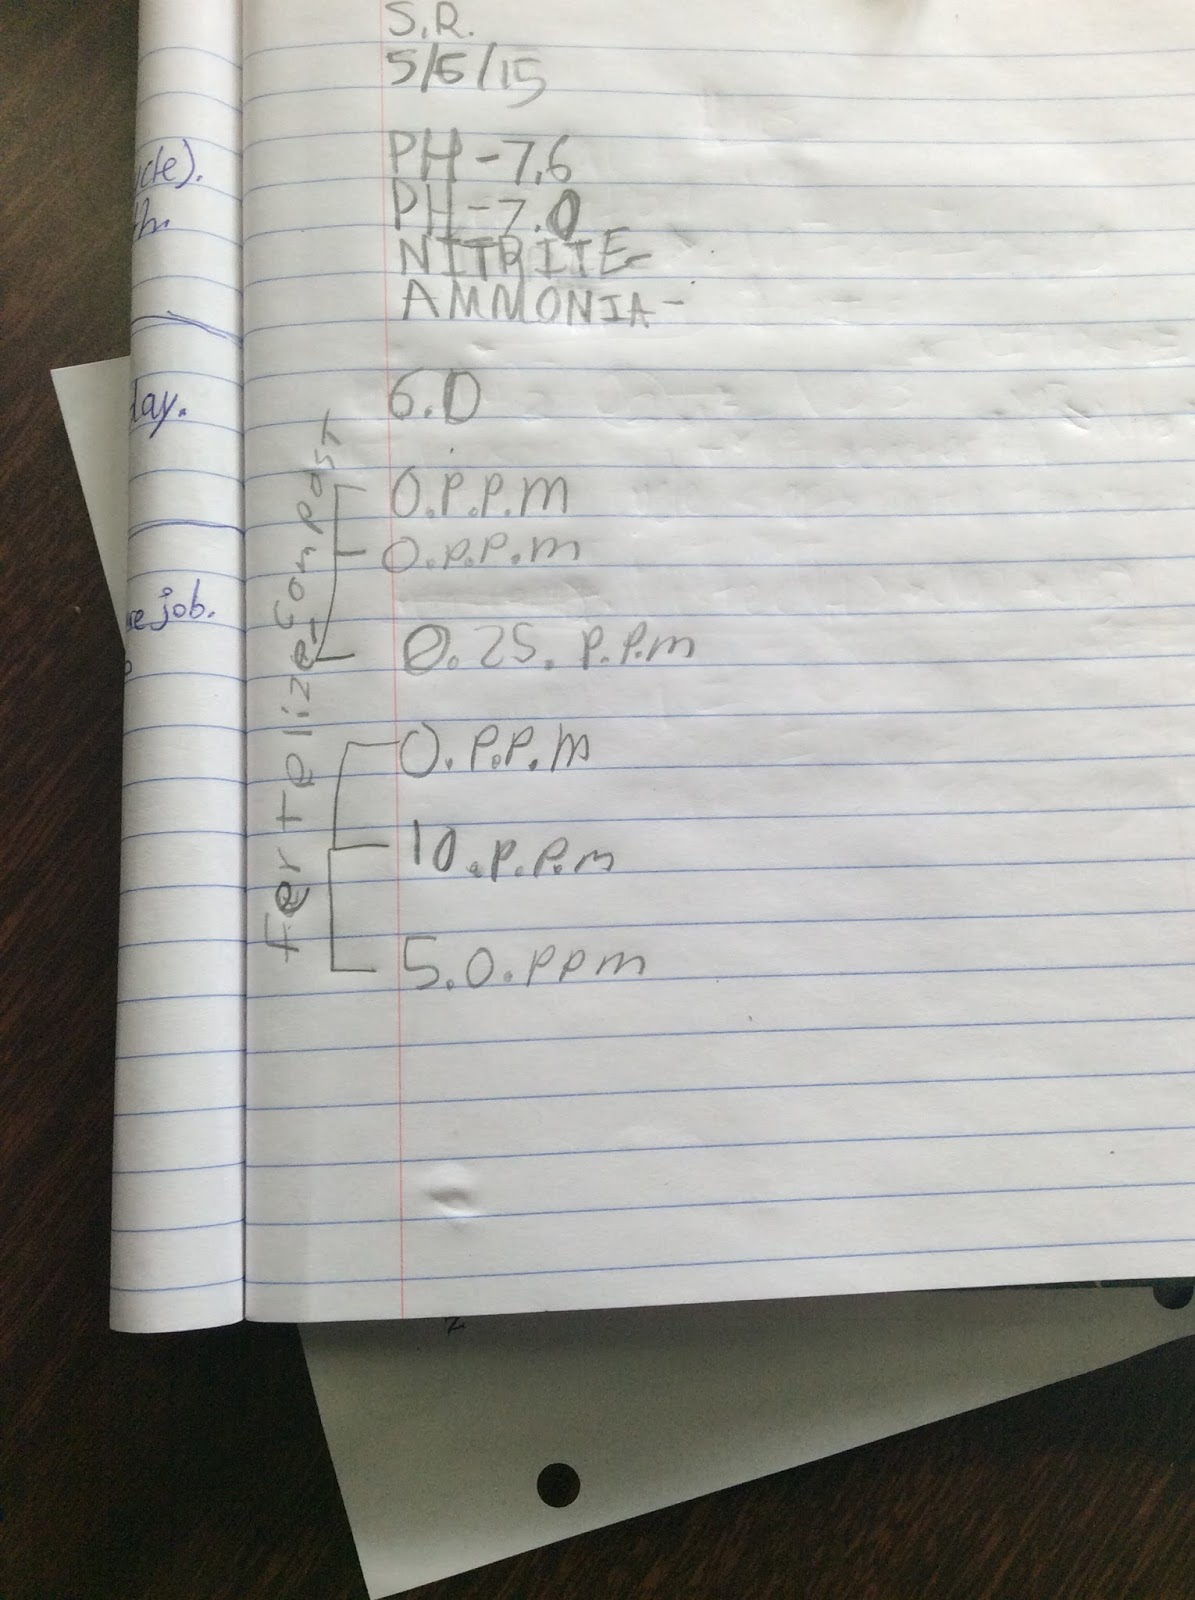 S.R.
5/6/15
PH-7.6
PH-7.0
NITRITE-
AMMONIA-
6.0
Compost
0.P.P.m
0.P.P.m
0.25.P.P.m
Fertelize
0.P.P.m
10.P.P.m
5.0.PPm
day.
job.